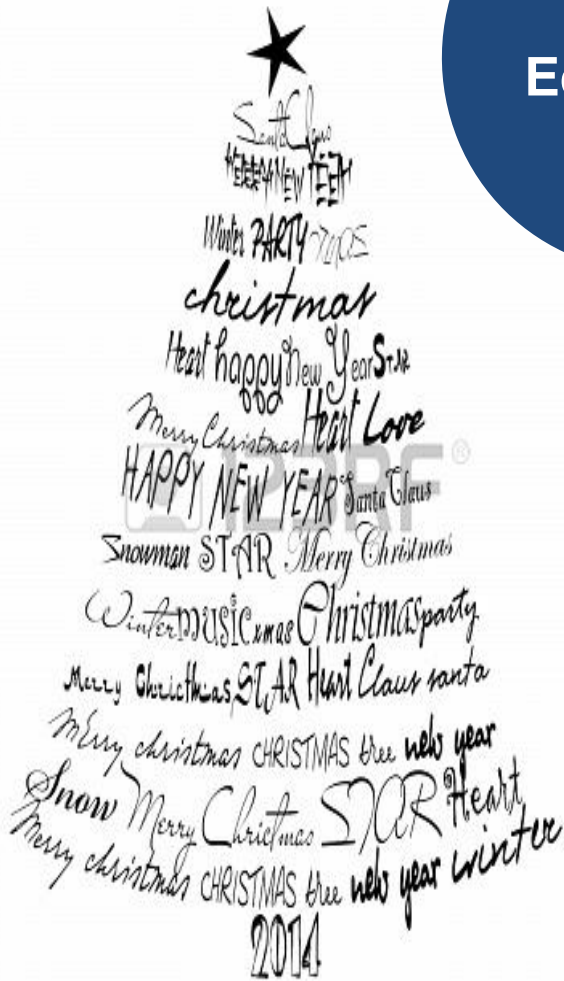 Santa Claus
NEW
Winter PARTY xmas
christmas
Heart happy New Year STAR
Merry Christmas Heart Love
HAPPY NEW YEAR Santa Claus
123RF®
Snowman STAR Merry Christmas
Winter music xmas Christmas party
Merry Chricthias STAR Heart Claus santa
Merry christmas CHRISTMAS tree new year
Snow Merry Chrictmas STAR Heart
Merry christmas CHRISTMAS tree new year winter
2014